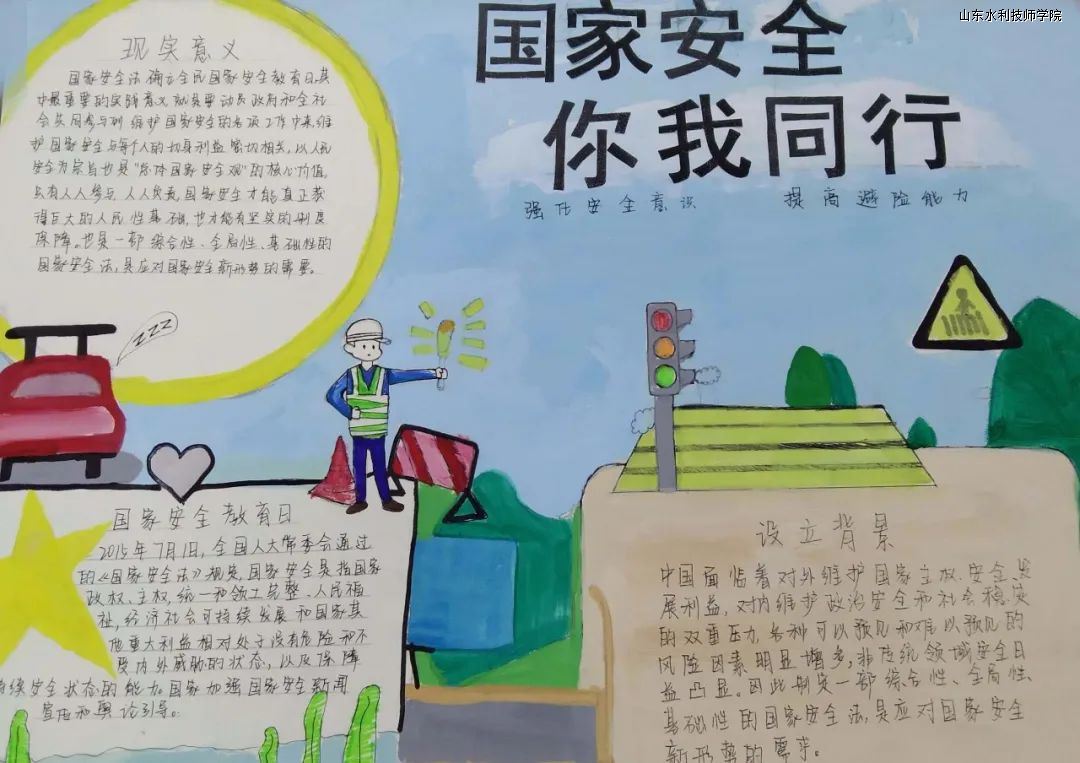 山东水利技师学院
国家安全
你我同行
强化安全意识 提高避险能力
现实意义
国家安全法确立全民国家安全教育日,其
中最重要的实践意义就是要动员政府和全社
会共同参与到维护国家安全的各项工作中来,维
护国家安全与每个人的切身利益密切相关,以人民
安全为宗旨也是"总体国家安全观"的核心价值,
只有人人参与,人人负责,国家安全才能真正获
得巨大的人民性基础,也才能有坚实的制度
保障。也是一部综合性、全局性、基础性的
国家安全法,是应对国家安全新形势的需要。
zzz
国家安全教育日
2015年7月1日,全国人大常委会通过
的《国家安全法》规定,国家安全是指国家
政权、主权,统一和领土完整、人民福
祉,经济社会可持续发展和国家其
他重大利益相对处于没有危险和不
受内外威胁的状态,以及保障
持续安全状态的能力。国家加强国家安全新闻
宣传和舆论引导。
设立背景
中国面临着对外维护国家主权、安全、发
展利益,对内维护政治安全和社会稳定
的双重压力,各种可以预见和难以预见的
风险因素明显增多,非传统领域安全日
益凸显。因此制定一部综合性、全局性、
基础性的国家安全法,是应对国家安全
新形势的需求。